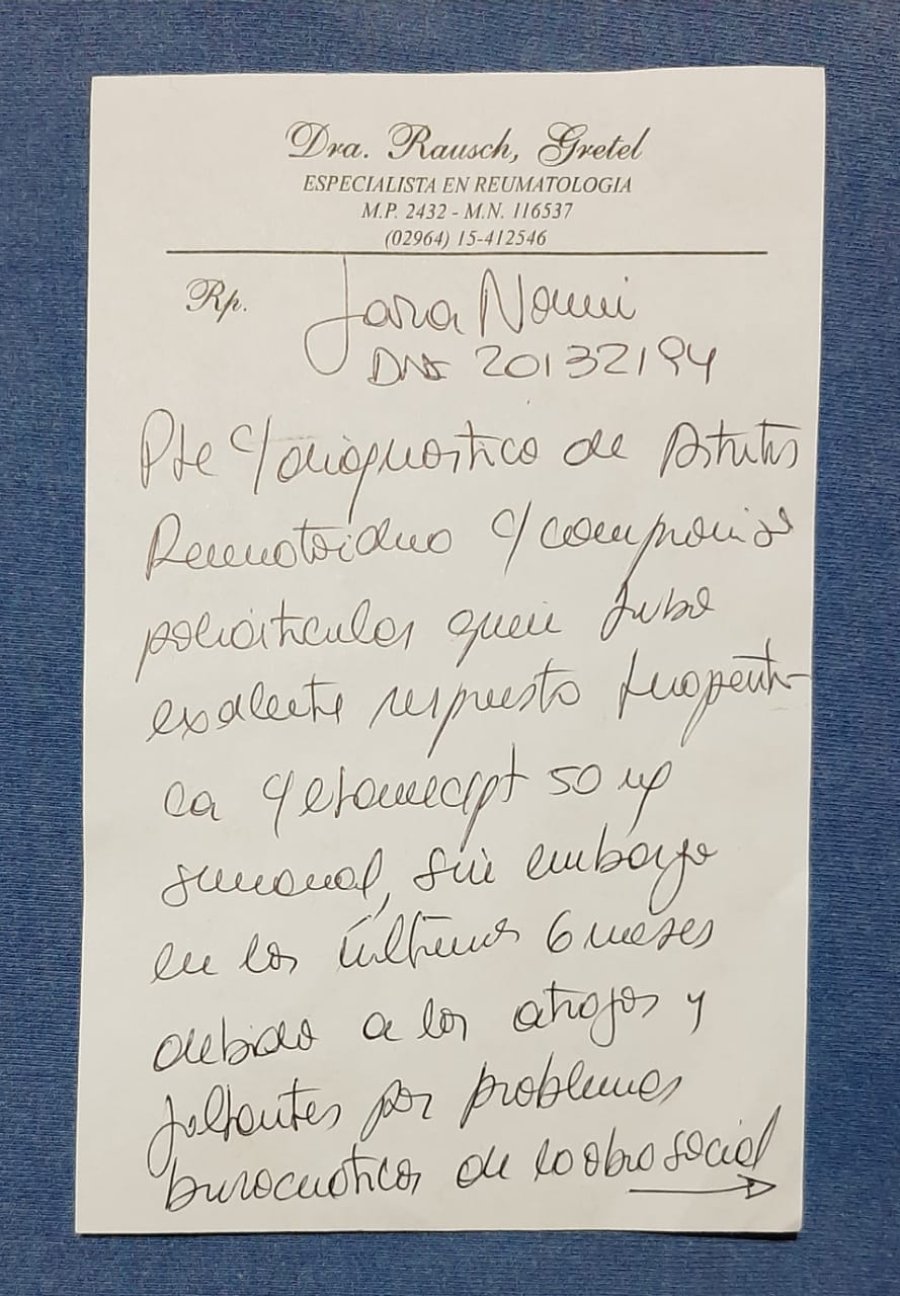 Dra. Rausch, Gretel
ESPECIALISTA EN REUMATOLOGIA
M.P. 2432 - M.N. 116537
(02964) 15-412546
Rp.
Jara Noemi
DNI 20132194
Pte c/ diagnostico de Artritis
Reumatoidea c/ compromiso
poliarticular quien tubo
excelente respuesta terapeuti-
ca c/ etanercept 50 mg
semanal, sin embargo
en los últimos 6 meses
debido a los atrasos y
faltantes por problemas
burocraticos de la obra social